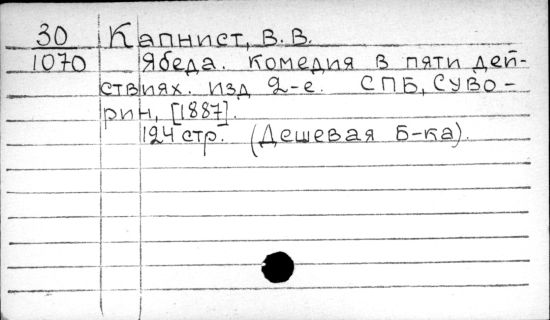 30 Капнист, В.В.
1070 Ябеда. Комедия в пяти дей-
ствиях. изд 2-е. СПБ, Суво-
рин, [1887].
124 стр. (Дешевая Б-ка).